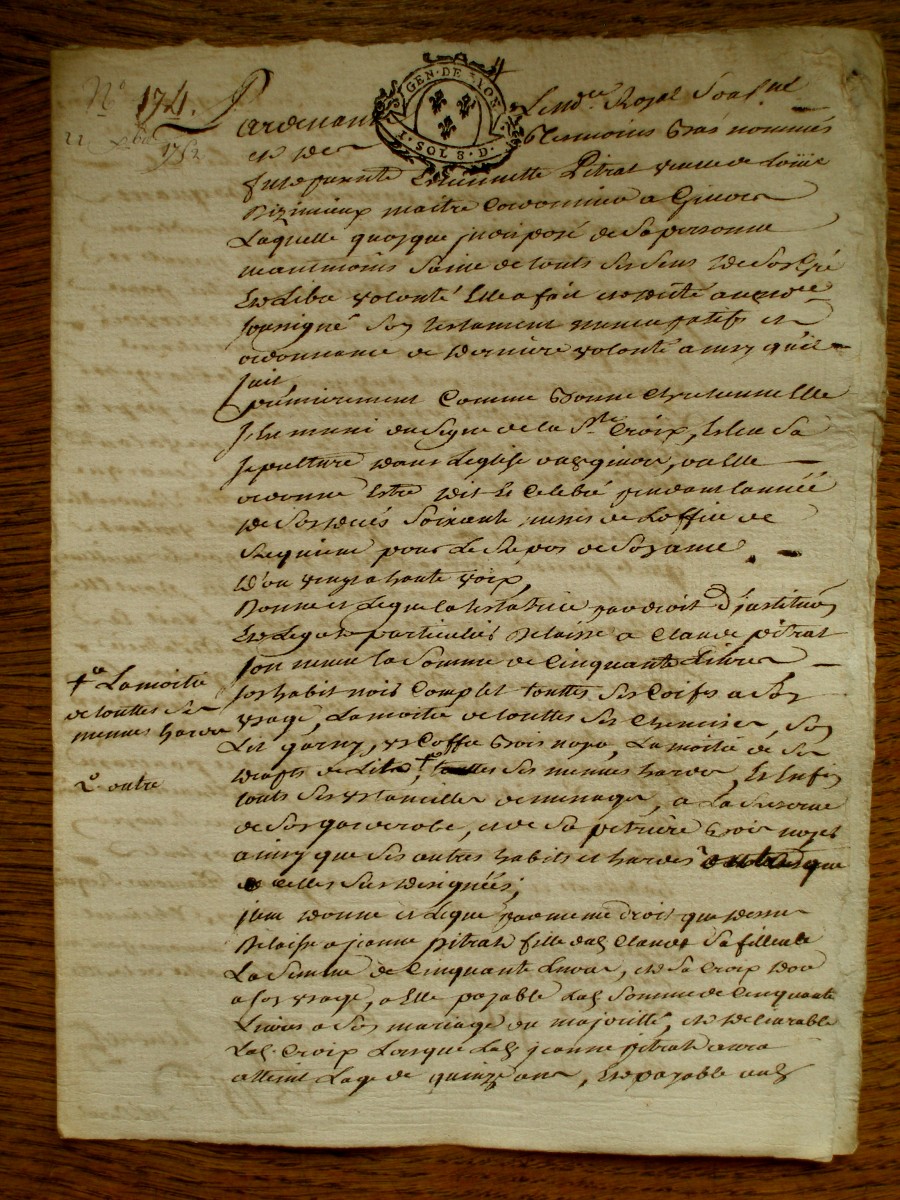 N° 174.
1752
GEN · DE LION
1 · SOL 8 · D ·
Pardevant le nore Royal soussné
et des temoins bas nommés
fut presente Estiennette Pitrat veuve de Loüis
maitre cordonnier a Givors
Laquelle quoyque jndisposé de sa personne
neantmoins saine de touts ses sens de son gré
et Libre volonté Elle a fait et dicté au nore
soussigné son testament nuncupatif et
ordonnance de derniere volonté ainsy qu'il
suit
premierement Comme bonne chretienne Elle
s'est muni du signe de la Ste Croix, Esleu sa
sepulture dans L'eglise dud givors, ou Elle
ordonne Estre dit et Celebré pendant l'année
de son decés soixante messes de L'office de
Requiem pour Le Repos de son ame
dont vingt a haute voix,
Donne et Legue la testatrice par droit d'jnstitution
et Legats particuliers delaisse a Claude pitrat
son neveu la somme de Cinquante Livres
son habit noir Complet touttes ses Coifes a son
usage, La moitié de touttes ses Chemises, son
Lit garny, un Coffre bois noyer, La moitié de ses
draps de Lit †, touttes ses menues hardes, Et Enfin
touts ses ustancilles de menage, a La Reserve
de son garderobe, et de sa petriere bois noyer
ainsy que ses autres habits et hardes que
celles sus designées;
† La moitié
de touttes ses
menues hardes
2° outre
jtem donne et Legue par meme droit que dessus
Delaisse a jeanne pitrat fille dud Claude sa filleule
La somme de Cinquante Livres, et sa Croix d'or
a son usage, a Elle payable lad somme de Cinquante
Livres a son mariage ou majorité, et delivrable
lad Croix Lorsque lad jeanne pitrat aura
atteint L'age de quinze ans, Et payable aud